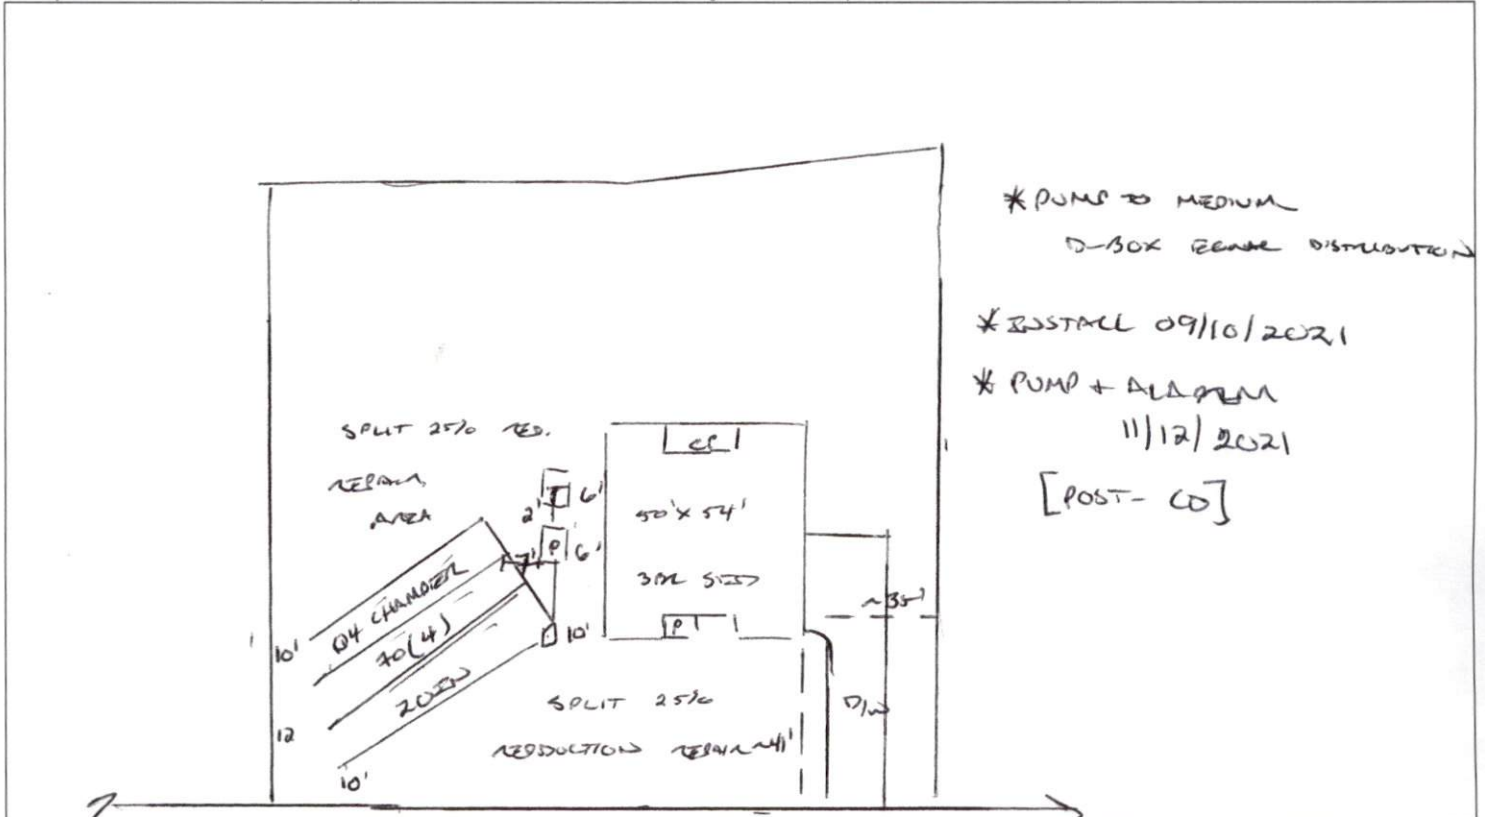 * PUMP TO MEDIUM
D-BOX EQUAL DISTRIBUTION
* INSTALL 09/10/2021
* PUMP + ALARM
11/12/2021
[POST- CO]
SPLIT 25% RED.
REPAIR
AREA
CP
50'X 54'
3BR SFD
P
6'
2'
P
6'
7'
10'
Q4 CHAMBER
70(4)
20IN
10'
12
10'
~35'
D/W
SPLIT 25%
REDDUCTION REPAIR ~41'